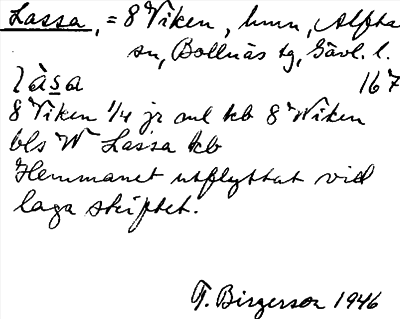 Lassa, = 8 Viken, hmn, Alfta
sn, Bollnäs tg, Gävl. l.
làsa 167
8 Viken 1/4 jr ml kb 8 Wiken
bls W Lassa kb
Hemmanet utflyttat vid
laga skiftet.
T. Birgersson 1946